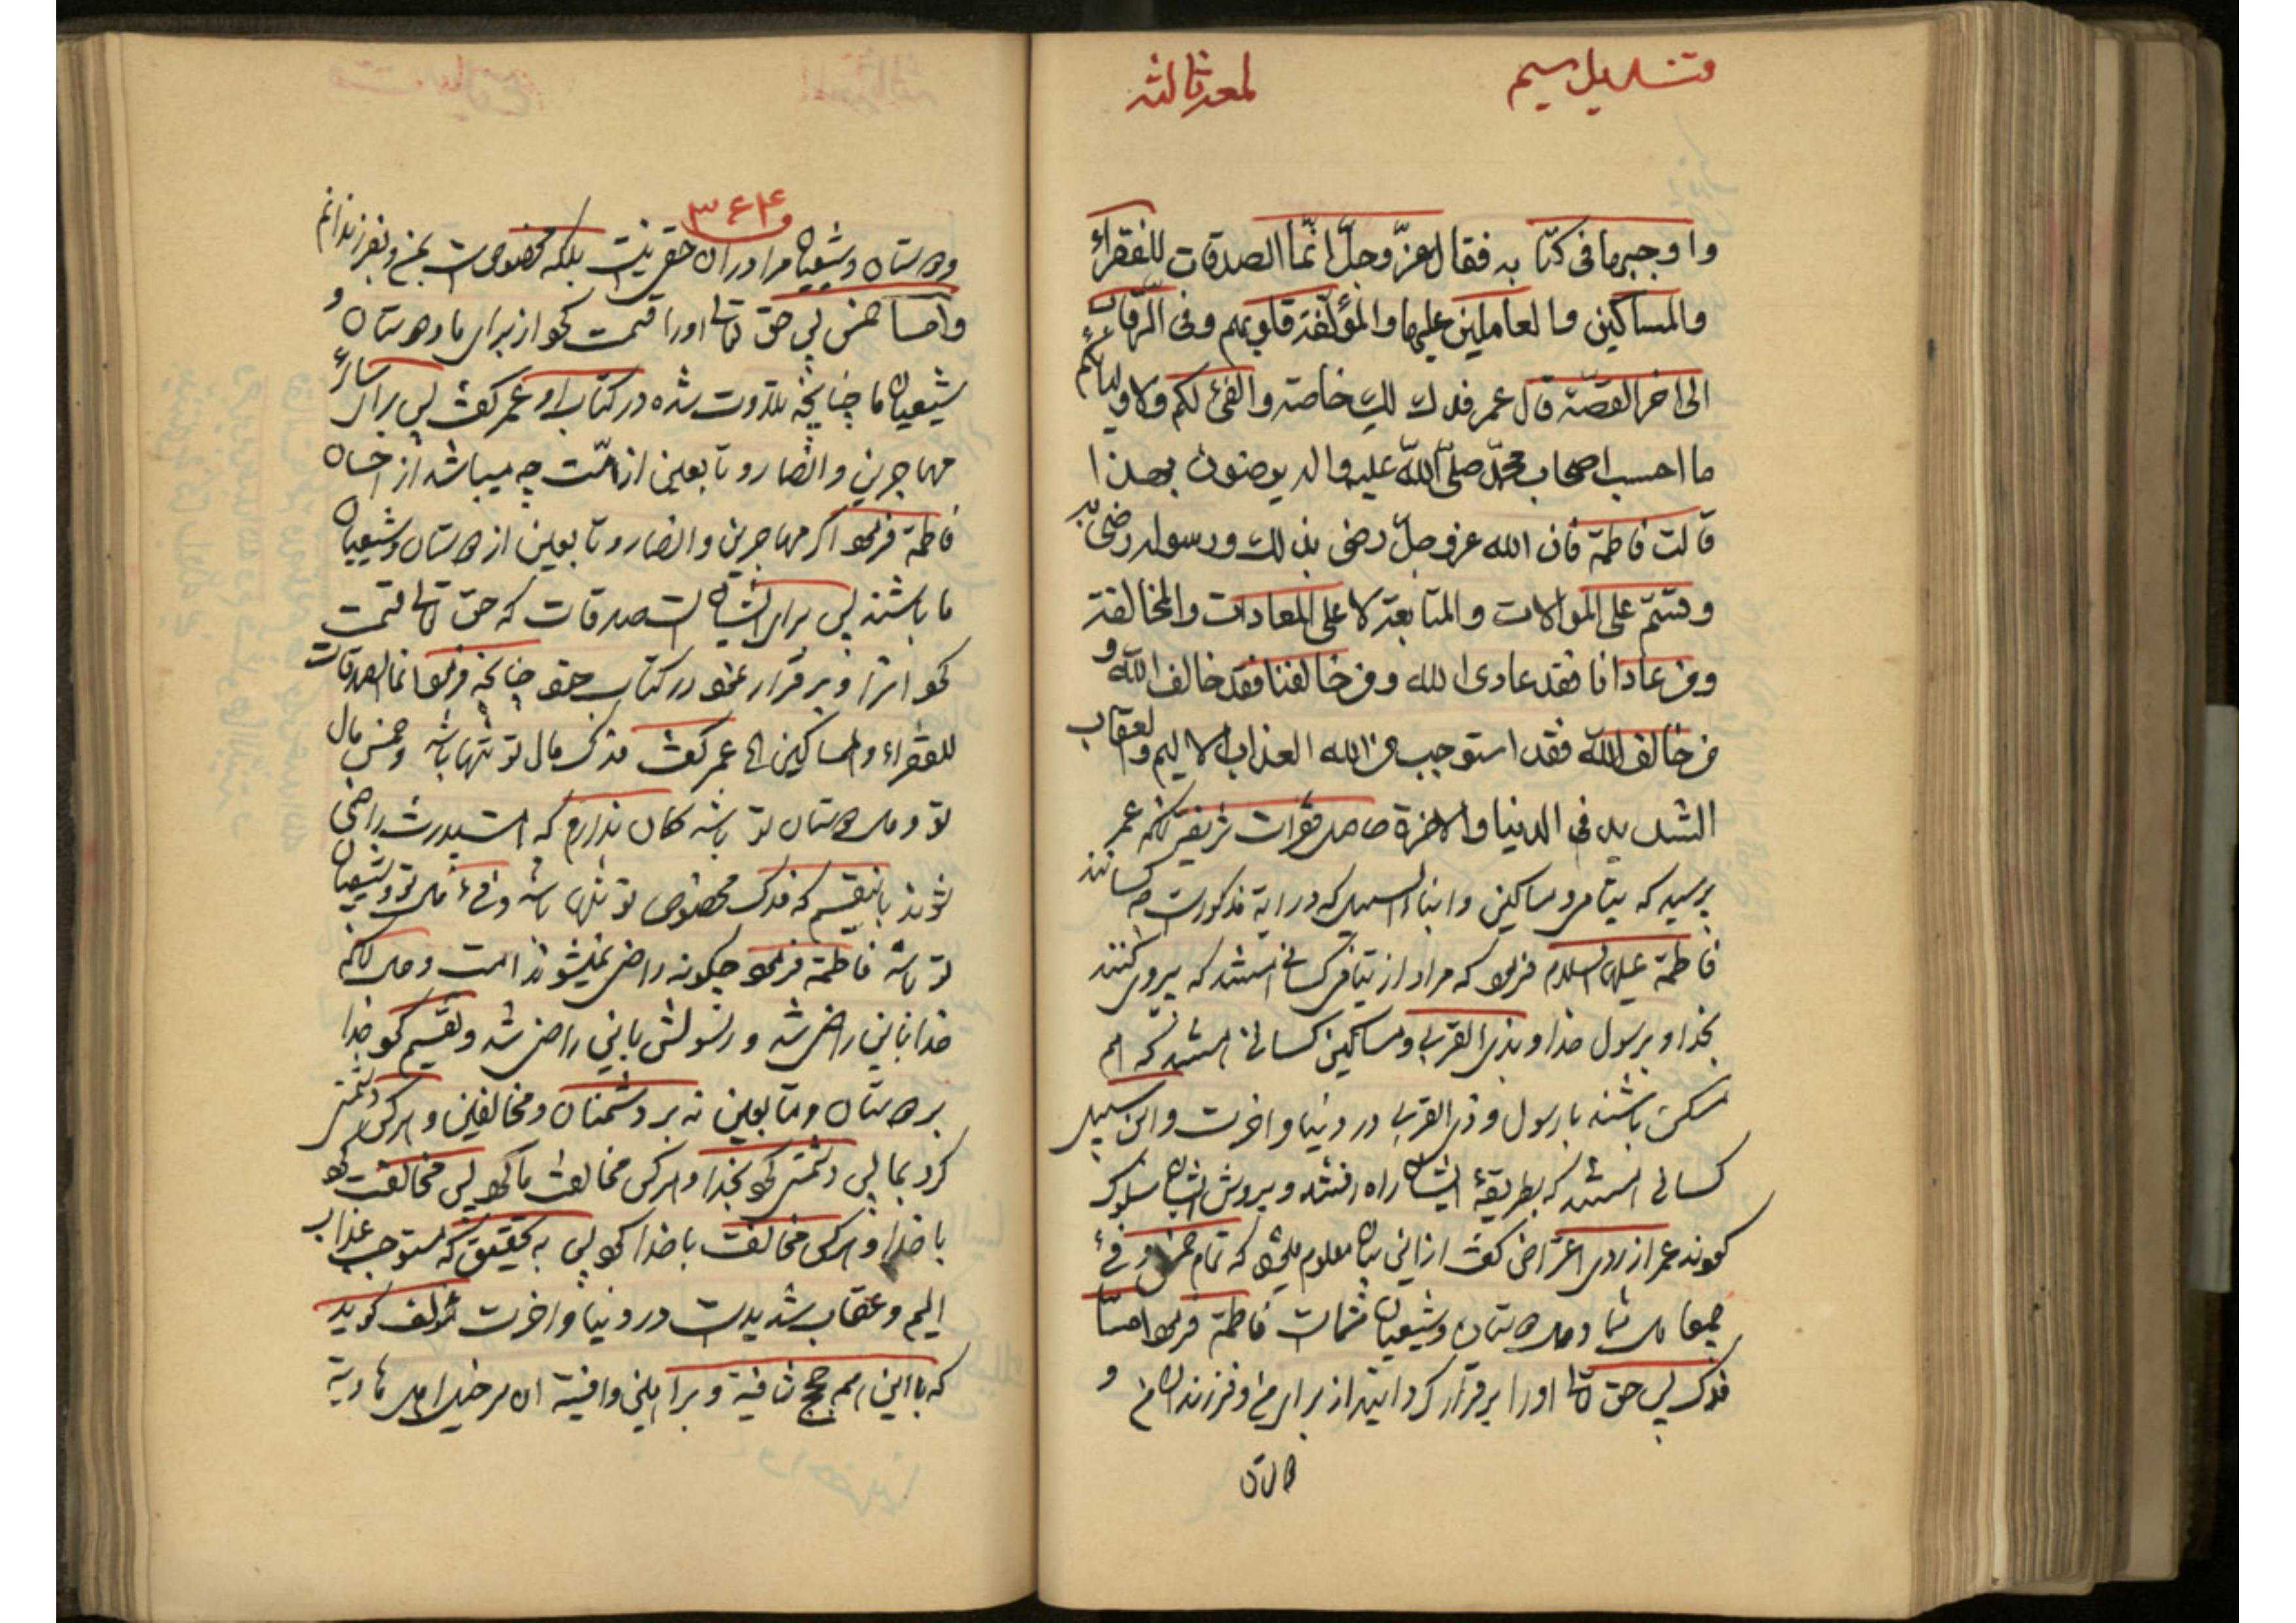 لمعه ثالثه
واوجبها فی کتابه فقال عزّ وجلّ انّما الصدقات للفقراء
والمساکین والعاملین علیها والمؤلّفة قلوبهم وفی الرّقاب
الی اخر القصّة قال عمر فدک لک خاصة والفیٔ لکم ولاولیائکم
ما احسب اصحاب محمّد صلّی اللّه علیه واله یرضون بهذا
قالت فاطمة فان الله عز وجلّ رضی بذلک ورسوله رضی به
وقسّم علی الموالات والمتابعة لا علی المعادات والمخالفة
ومن عادانا فقد عادی الله ومن خالفنا فقد خالف اللّه و
من خالف اللّه فقد استوجب من الله العذاب الالیم والعقاب
الشدید فی الدنیا والاخرة حاصل فقرات شریفه آنکه عمر
پرسید که یتامی ومساکین وابناء السبیل که در ایة مذکورست چه کسانند
فاطمة علیها السلام فرمود که مراد از یتامی کسانی هستند که پیروی کنند
بخدا و برسول خدا و بذی القربی ومساکین کسانی هستند که هم
مسکن باشند با رسول و ذی القربی در دنیا و اخرت وابن سبیل
کسانی هستند که بطریقهٔ ایشان راه رفتند و بروش ایشان سلوک
نمودند عمر از روی اعتراض گفت از این بیان معلوم میشود که تمام خمس و فیٔ
جمیعا مال شما و مال دوستان وشیعیان شماست فاطمة فرمود امّا
فدک پس حق تعالی اورا برقرار گردانید از برای من وفرزندان من و
دوستان
۳۶۴
ودوستان وشیعیان مرا در ان حقی نیست بلکه مخصوص است بمن وبفرزندانم
وامّا خمس پس حق تعالی اورا قسمت نمود از برای ما ودوستان و
شیعیان ما چنانچه تلاوت شده در کتاب او عمر گفت پس برای سائر
مهاجرین و انصار و تابعین از امّت چه میباشد از احسان
فاطمة فرمود اگر مهاجرین و انصار و تابعین از دوستان وشیعیان
ما باشند پس برای ایشان است صدقات که حق تعالی قسمت
نمود انرا و برقرار نمود در کتاب خود چنانچه فرمود انما الصدقات
للفقراء والمساکین الخ عمر گفت فدک مال تو تنها باشد وخمس مال
تو ومال دوستان تو باشد گمان ندارم که امت پدرت راضی
شوند باینقسم که فدک مخصوص تو تنها باشد وفیٔ مال تو وشیعیان
تو باشد فاطمة فرمود چگونه راضی نمیشوند امت وحال آنکه
خدا باین راضی شد و رسولش باین راضی شد وتقسیم نمود خدا
بر دوستان و متابعین نه بر دشمنان ومخالفین و هرکس دشمنی
کرد بما پس دشمنی نمود بخدا و هرکس مخالفت ما نمود پس مخالفت نمود
با خدا و هرکس مخالفت با خدا نمود پس به تحقیق که مستوجب عذاب
الیم وعقاب شدیدست در دنیا و اخرت مؤلف گوید
که با این همه حجج شافیة وبراهین وافیة ان سرخیل اهل هاویة